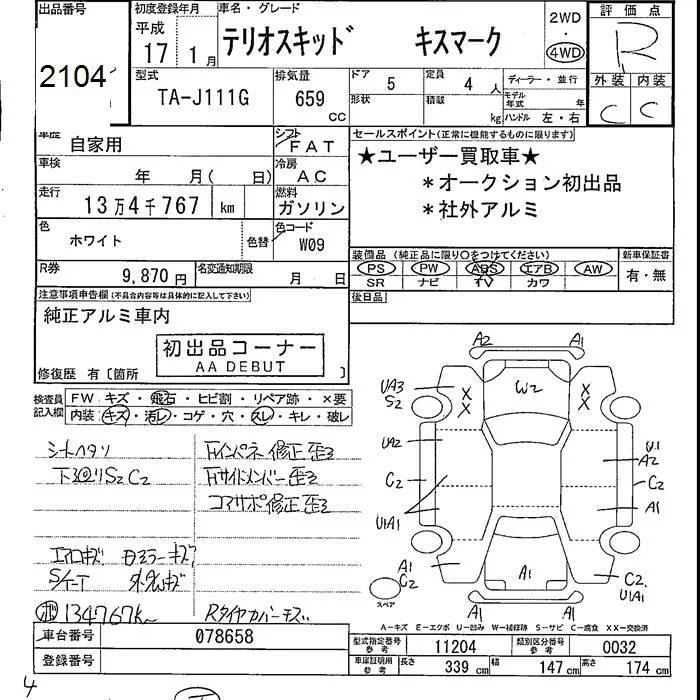 出品番号
2104
初度登録年月
平成
17 1月
車名・グレード
テリオスキッド キスマーク
2WD
・
4WD
評価点
R
外装 内装
C C
型式
TA-J111G
排気量
659
cc
ドア 5
定員 4 人
形状
積載 kg
ディーラー・並行
モデル年式 年
ハンドル 左・右
車歴 自家用
シフト FAT
車検 年 月( 日)
冷房 AC
走行 13万4千767 km
燃料 ガソリン
色 ホワイト
色替
色コード W09
R券 9,870円
名変通知期限 月 日
セールスポイント(正常に機能するものに限ります)
★ユーザー買取車★
*オークション初出品
*社外アルミ
装備品(純正品に限り○をつけてください)
PS PW ABS エアB AW
SR ナビ TV カワ
新車保証書
有・無
後日品
注意事項申告欄(不具合内容等は具体的に記入して下さい)
純正アルミ車内
初出品コーナー
AA DEBUT
修復歴 有〔箇所 〕
検査員記入欄
FW キズ・飛石・ヒビ割・リペア跡・×要
内装・キズ・汚レ・コゲ・穴・スレ・キレ・破レ
シートヘタリ
下回りS2C2
Fインパネ修正歪
Fサイドメンバー歪
コアサポ修正歪
エアロキズ
ミラーキズ
134767K
Rタイヤカバーキズ
A2 A1
UA3
S2
X
X
X
X
W2
UA2
C2
U1A1
U1
A2
C2
A1
A1
C2
A1
C2
U1A1
A1 A1
スペア
A-キズ E-エクボ U-凹み W-補修跡 S-サビ C-腐食 XX-交換済
車台番号 078658
登録番号
型式指定番号
参考
11204
類別区分番号
参考
0032
車庫証明用
参考
長さ 339 cm
幅 147 cm
高さ 174 cm
4